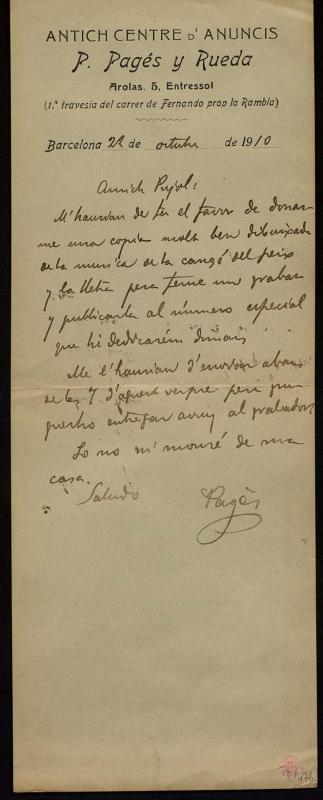 ANTICH CENTRE D'ANUNCIS
P. Pagés y Rueda
Arolas, 5, Entressol
(1.ª travesia del carrer de Fernando prop la Rambla)
Barcelona 22 de octubre de 1910
Amich Pujol:
M'haurian de fer el favor de donar
me una copia molt ben dibuixada
de la musica de la cançó del peix
y la lletra pera ferne un grabat
y publicarla al número especial
que hi dedicarém dimars
Me l'haurian d'enviar abans
de las 7 d'aquest vespre pera
poguerho entregar avuy al grabador.
Jo no m' mouré de ma
casa.
Saludo Pagés